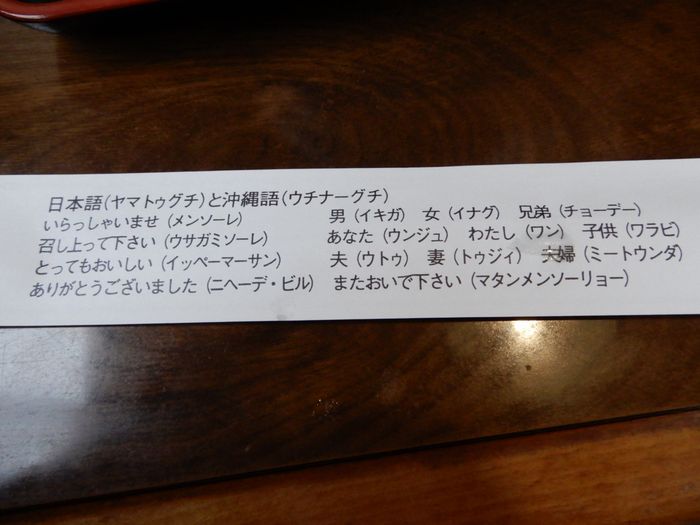 日本語(ヤマトゥグチ)と沖縄語(ウチナーグチ)
いらっしゃいませ (メンソーレ) 男 (イキガ) 女 (イナグ) 兄弟 (チョーデー)
召し上って下さい (ウサガミソーレ) あなた (ウンジュ) わたし (ワン) 子供 (ワラビ)
とってもおいしい (イッペーマーサン) 夫 (ウトゥ) 妻 (トゥジィ) 夫婦 (ミートウンダ)
ありがとうございました (ニヘーデ・ビル) またおいで下さい (マタンメンソーリョー)